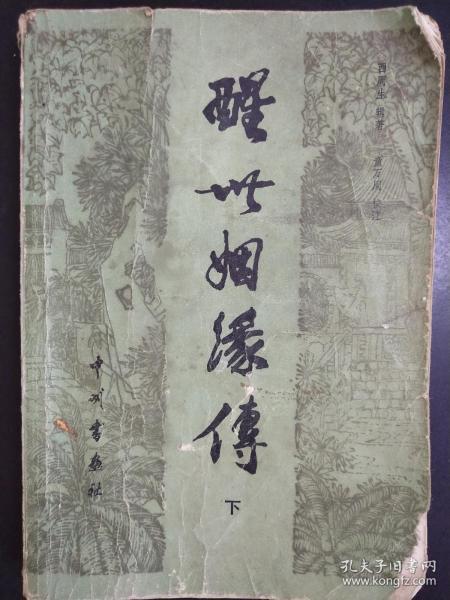 醒世姻缘傳
下
西周生 辑著
童万周 校注
中州書画社
孔夫子旧书网
www.kongfz.com